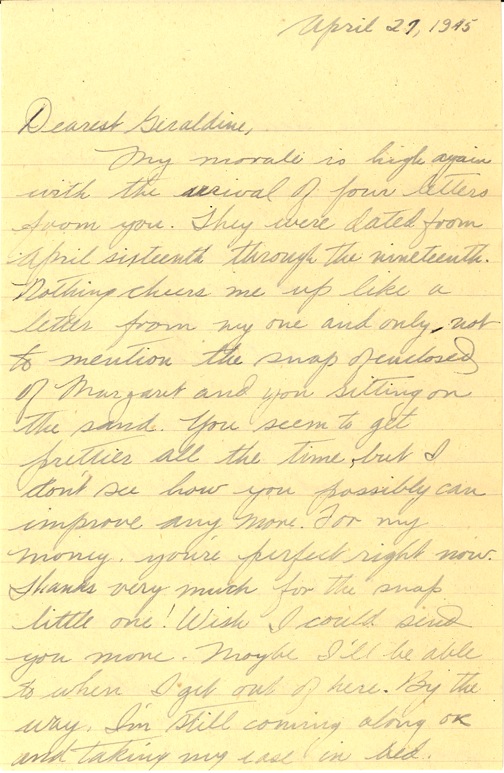 April 27, 1945
Dearest Geraldine,
My morale is high again
with the arrival of four letters
from you. They were dated from
April sixteenth through the nineteenth.
Nothing cheers me up like a
letter from my one and only, not
to mention the snap enclosed
of Margaret and you sitting on
the sand. You seem to get
prettier all the time, but I
don't see how you possibly can
improve any more. For my
money, you're perfect right now.
Thanks very much for the snap
little one! Wish I could send
you more. Maybe I'll be able
to when I get out of here. By the
way, I'm still coming along ok
and taking my ease in bed.